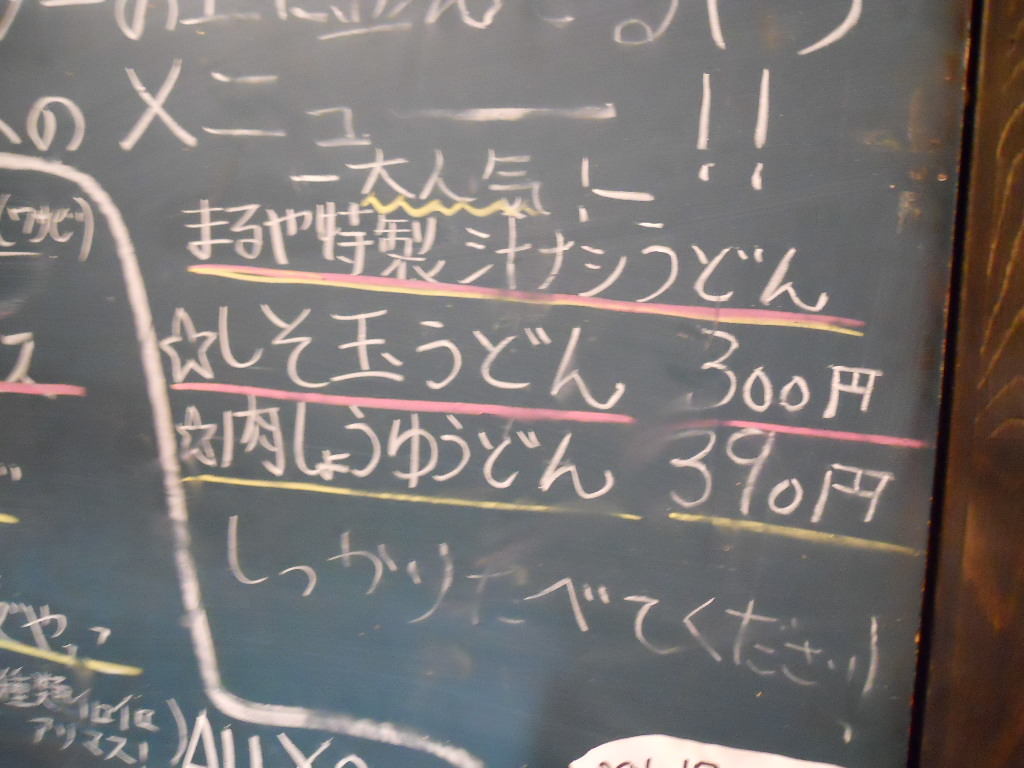 のメニュー!!
大人気!
まるや特製汁ナシうどん
☆しそ玉うどん 300円
☆肉しょうゆうどん 390円
しっかりたべてください!
(ワサビ)
ス
種類イロイロ
アリマス!)